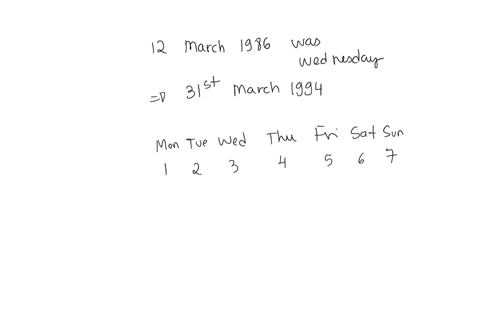 12 March 1986 was
wednesday
⇒ 31st March 1994
Mon Tue Wed Thu Fri Sat Sun
1 2 3 4 5 6 7